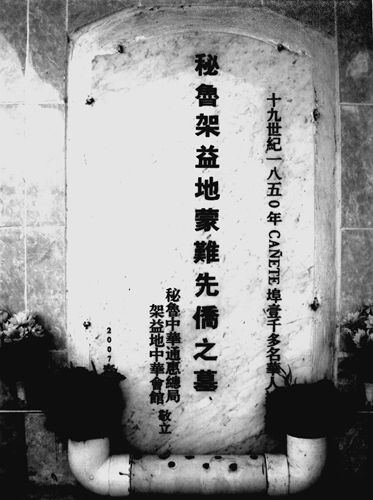 十九世紀一八五0年CAÑETE埠壹千多名華人
秘魯架益地蒙難先僑之墓
秘魯中華通惠總局
架益地中華會館 敬立
2007